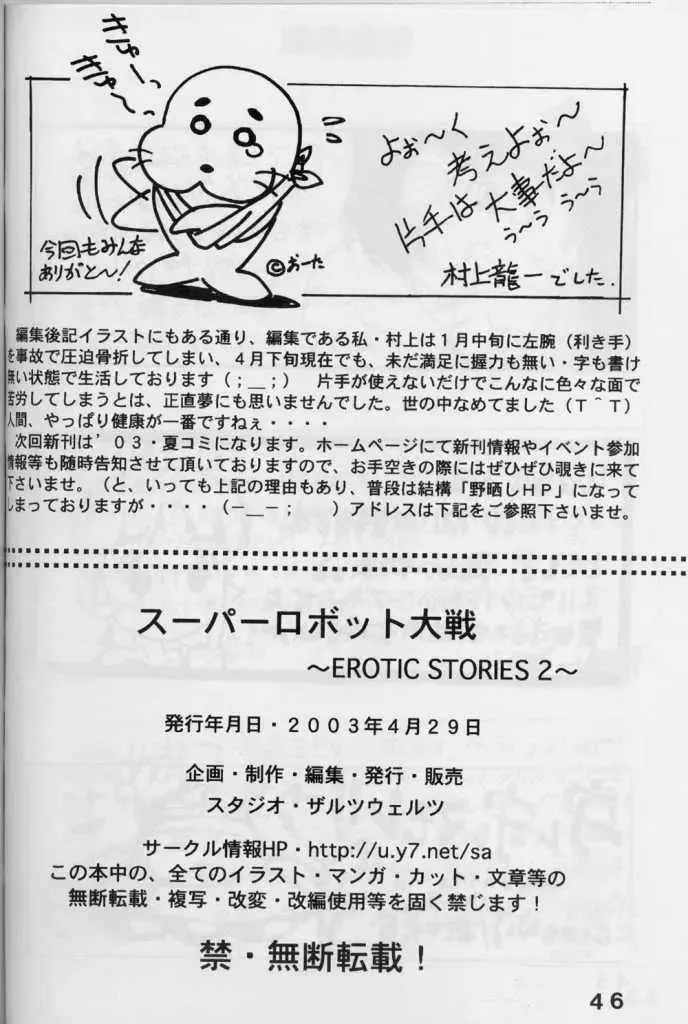 きゅーっ
きゅ〜っ
よぉ〜く
考えよぉ〜
片手は大事だよ〜
う〜う う〜う
村上龍一でした.
今回もみんな
ありがと〜!
©おーた
編集後記イラストにもある通り、編集である私・村上は1月中旬に左腕(利き手)
を事故で圧迫骨折してしまい、4月下旬現在でも、未だ満足に握力も無い・字も書け
無い状態で生活しております(;__;) 片手が使えないだけでこんなに色々な面で
苦労してしまうとは、正直夢にも思いませんでした。世の中なめてました(T^T)
人間、やっぱり健康が一番ですねぇ・・・・
次回新刊は'03・夏コミになります。ホームページにて新刊情報やイベント参加
情報等も随時告知させて頂いておりますので、お手空きの際にはぜひぜひ覗きに来て
下さいませ。(と、いっても上記の理由もあり、普段は結構「野晒しHP」になって
しまっておりますが・・・・(−__−; )アドレスは下記をご参照下さいませ。
スーパーロボット大戦
〜EROTIC STORIES 2〜
発行年月日・2003年4月29日
企画・制作・編集・発行・販売
スタジオ・ザルツウェルツ
サークル情報HP・http://u.y7.net/sa
この本中の、全てのイラスト・マンガ・カット・文章等の
無断転載・複写・改変・改編使用等を固く禁じます!
禁・無断転載!
46